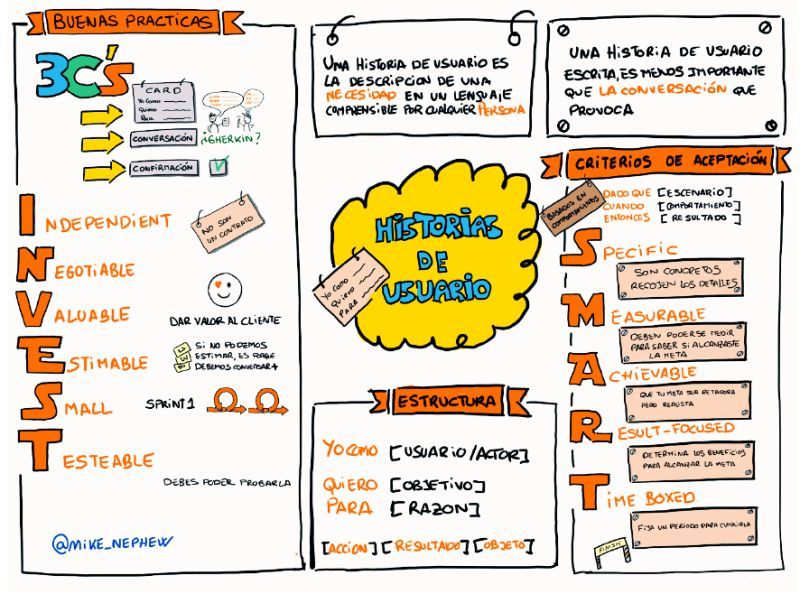 BUENAS PRACTICAS
3C's
CARD
YO COMO
QUIERO
PARA
CONVERSACIÓN
¿GHERKIN?
CONFIRMACIÓN
INDEPENDIENT
NO SON
UN CONTRATO
NEGOTIABLE
VALUABLE
DAR VALOR AL CLIENTE
ESTIMABLE
SI NO PODEMOS
ESTIMAR, ES PORQUE
DEBEMOS CONVERSAR +
SMALL
SPRINT 1
TESTEABLE
DEBES PODER PROBARLA
@MIKE_NEPHEW
UNA HISTORIA DE USUARIO ES
LA DESCRIPCION DE UNA
NECESIDAD EN UN LENGUAJE
COMPRENSIBLE POR CUALQUIER PERSONA
UNA HISTORIA DE USUARIO
ESCRITA, ES MENOS IMPORTANTE
QUE LA CONVERSACIÓN QUE
PROVOCA
HISTORIAS
DE
USUARIO
YO COMO
QUIERO
PARA
ESTRUCTURA
YO COMO [USUARIO/ACTOR]
QUIERO [OBJETIVO]
PARA [RAZON]
[ACCION] [RESULTADO] [OBJETO]
CRITERIOS DE ACEPTACIÓN
BASADOS EN
COMPORTAMIENTOS
DADO QUE [ESCENARIO]
CUANDO [COMPORTAMIENTO]
ENTONCES [RESULTADO]
SPECIFIC
SON CONCRETOS
RECOJEN LOS DETALLES
MEASURABLE
DEBEN PODERSE MEDIR
PARA SABER SI ALCANZASTE
LA META
ACHIEVABLE
QUE TU META SEA RETADORA
PERO REALISTA
RESULT-FOCUSED
DETERMINA LOS BENEFICIOS
PARA ALCANZAR LA META
TIME BOXED
FIJA UN PERIODO PARA CUMPLIRLA